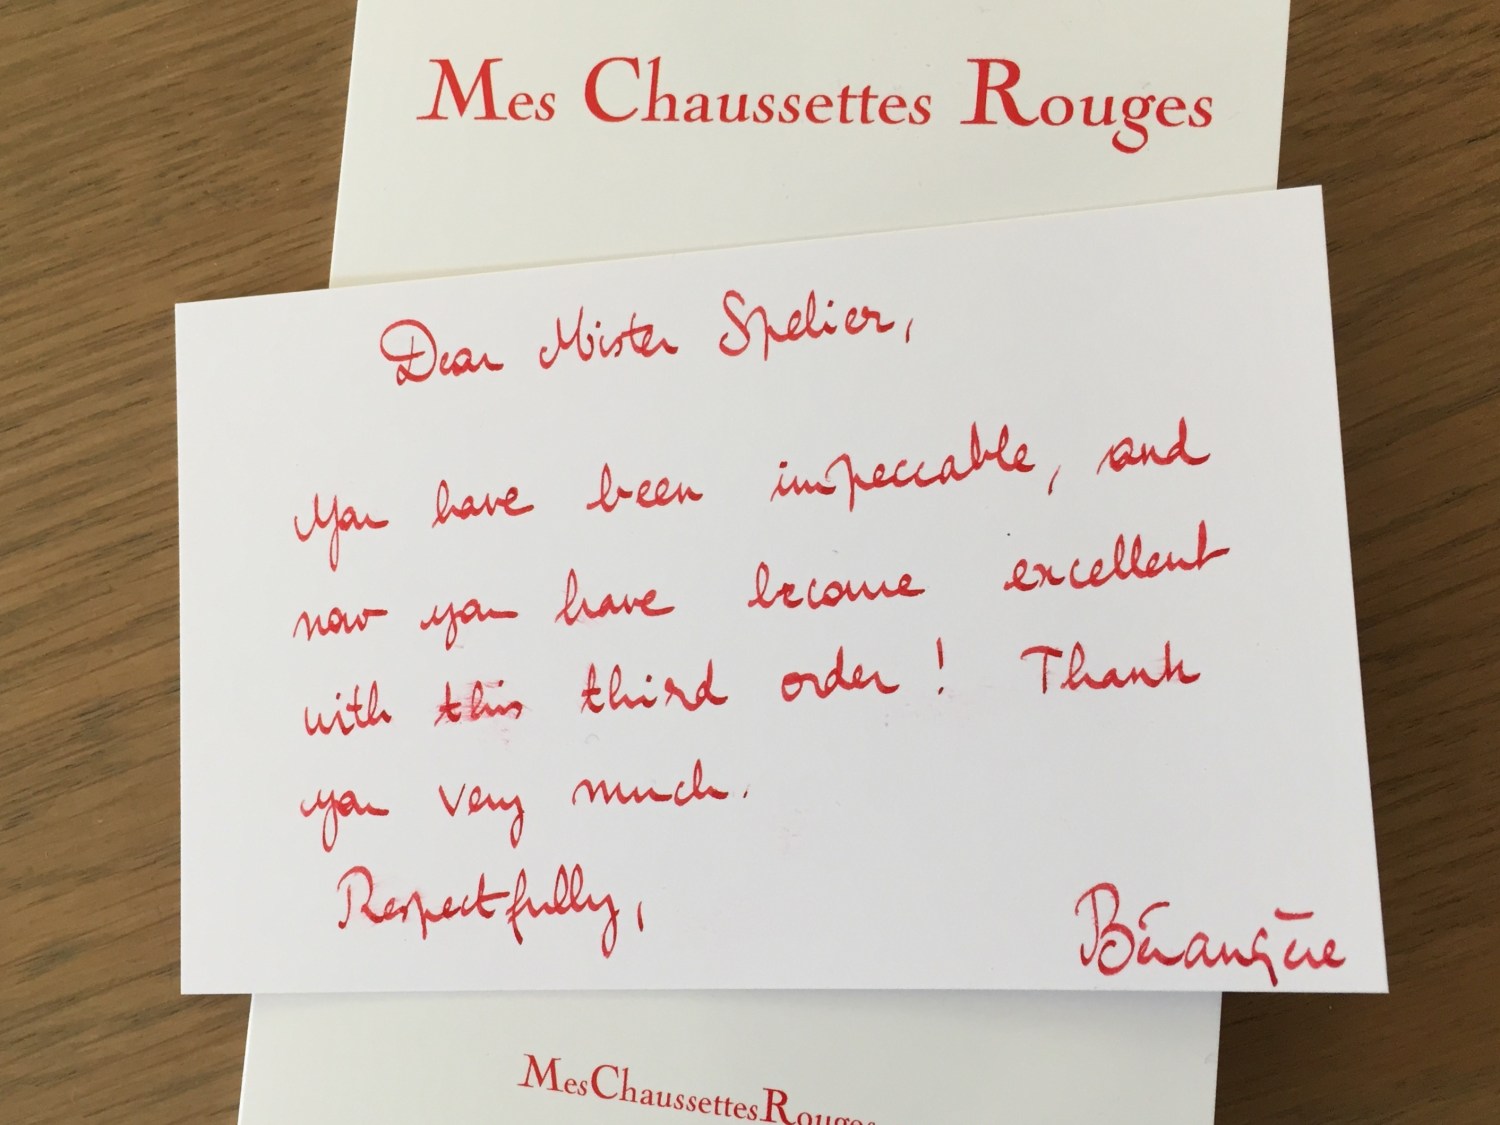 Mes Chaussettes Rouges
Dear Mister Spelier,
You have been impeccable, and
now you have become excellent
with this third order! Thank
you very much.
Respectfully,
Bérangère
MesChaussettesRouges